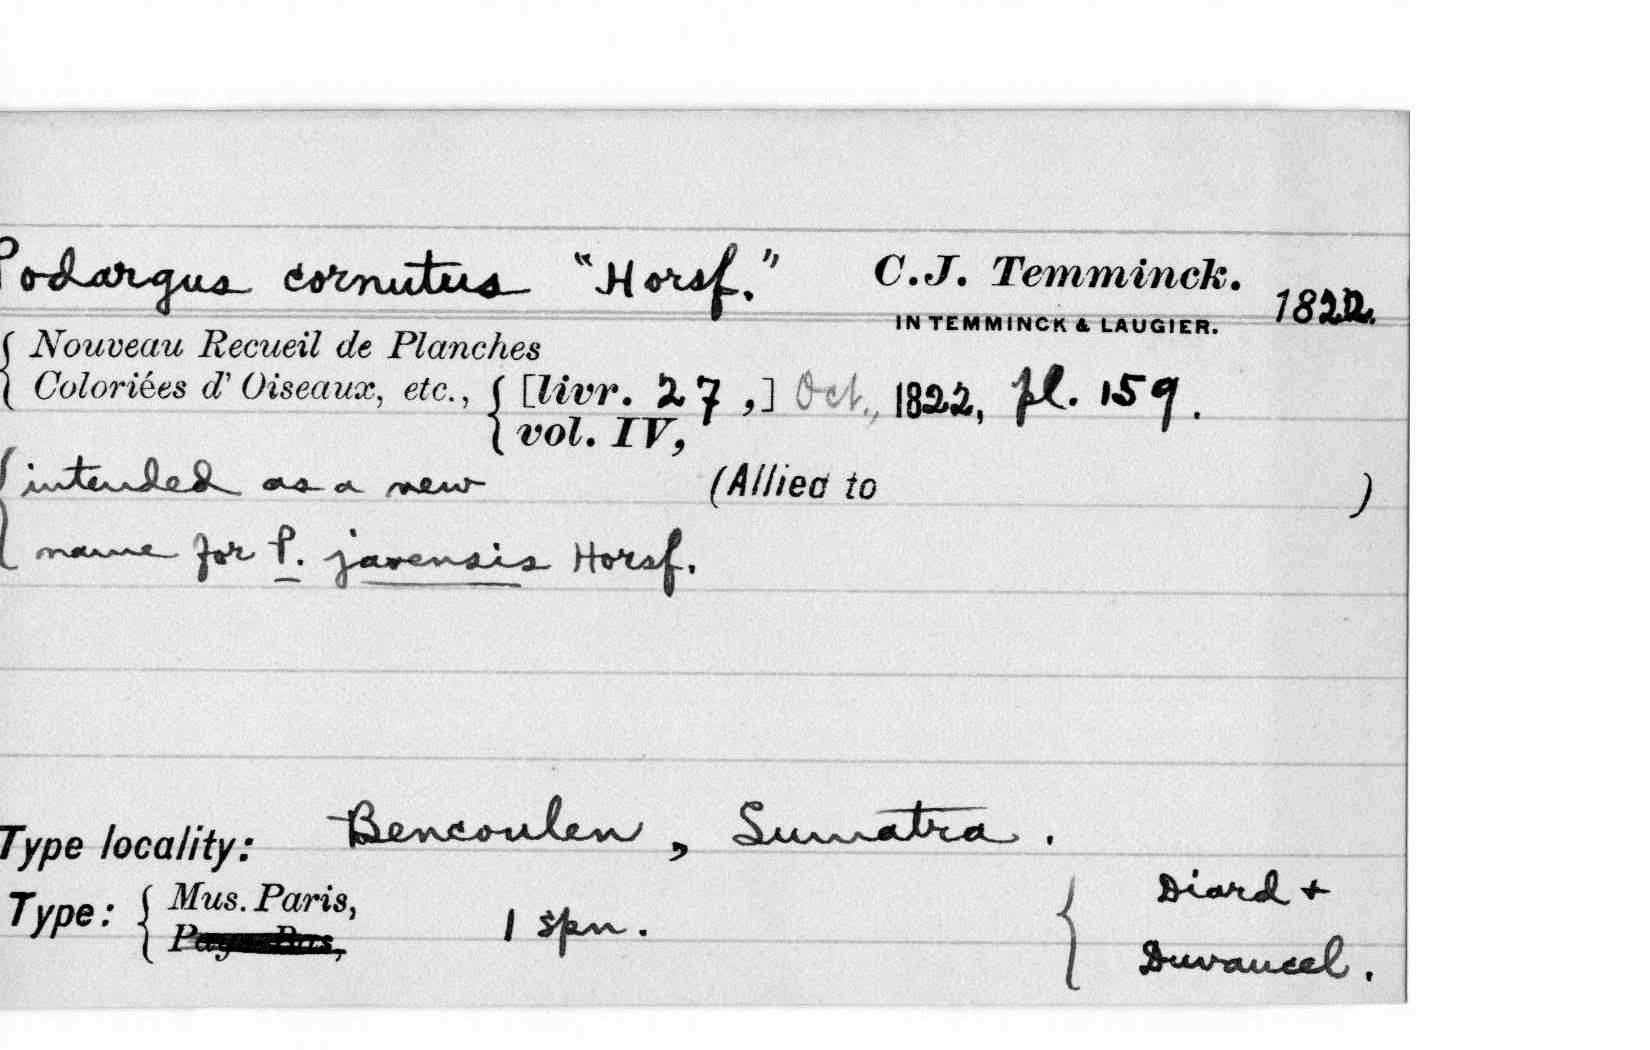 Podargus cornutus "Horsf." C.J. Temminck. 1822.
IN TEMMINCK & LAUGIER.
Nouveau Recueil de Planches
Coloriées d' Oiseaux, etc., [livr. 27,] Oct., 1822, pl. 159.
vol. IV,
intended as a new (Allied to )
name for P. javensis Horsf.
Type locality: Bencoulen, Sumatra.
Type: Mus. Paris, 1 spn. Diard +
Pays-Bas, Duvaucel.